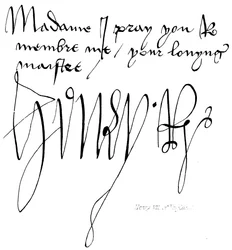 Madame I pray you Re
membre me / your lovyng
maister
Henry R